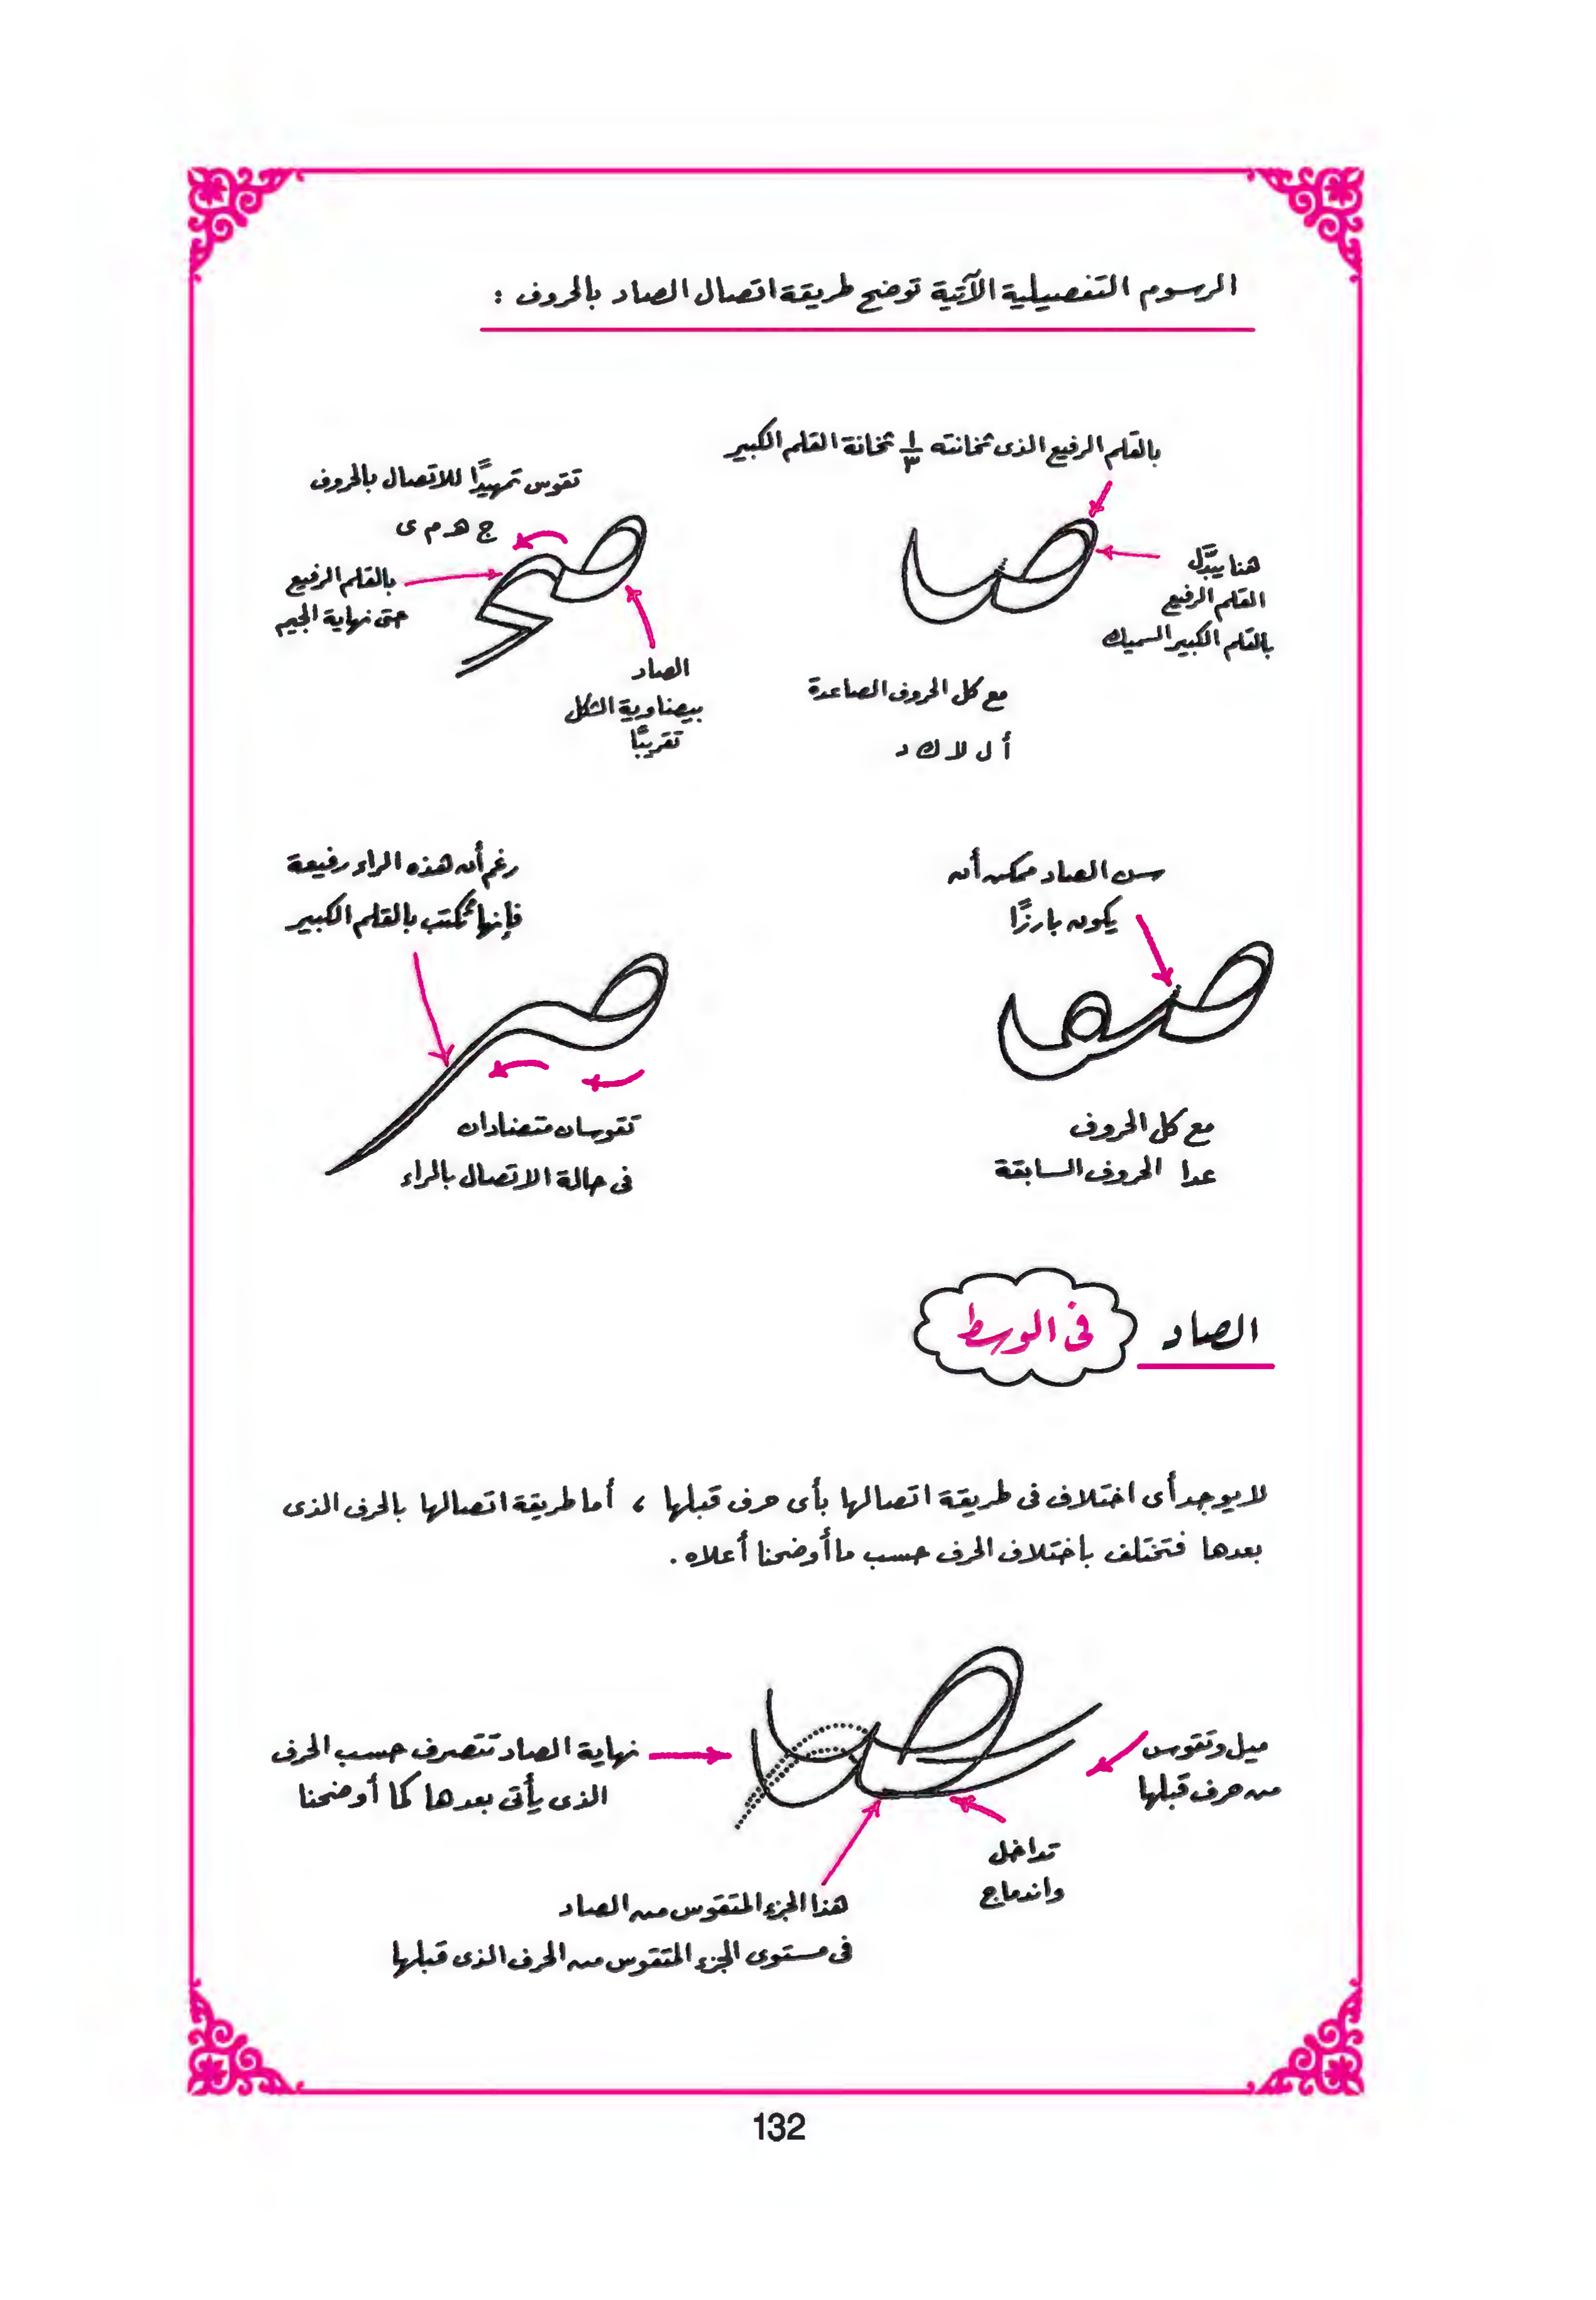 الرسوم التفصيلية الآتية توضح طريقة اتصال الصاد بالحروف :
بالقلم الرفيع الذى ثخانته ١/٣ ثخانة القلم الكبير
هنا يبدَّل
القلم الرفيع
بالقلم الكبير السميك
صا
مع كل الحروف الصاعدة
أ ل لا ك د
تقوس تمهيدًا للاتصال بالحروف
ج ه م ى
بالقلم الرفيع
حتى نهاية الجيم
صح
الصاد
بيضاوية الشكل
تقريبًا
سن الصاد ممكن أن
يكون بارزًا
مع كل الحروف
عدا الحروف السابقة
رغم أن هذه الراء رفيعة
فإنها تُكتب بالقلم الكبير
صر
تقوسان متضادان
فى حالة الاتصال بالراء
الصاد فى الوسط
لا يوجد أى اختلاف فى طريقة اتصالها بأى حرف قبلها ، أما طريقة اتصالها بالحرف الذى
بعدها فتختلف باختلاف الحرف حسب ما أوضحنا أعلاه .
ميل وتقوس
من حرف قبلها
نهاية الصاد تتصرف حسب الحرف
الذى يأتى بعدها كما أوضحنا
تداخل
واندماج
هذا الجزء المتقوس من الصاد
فى مستوى الجزء المتقوس من الحرف الذى قبلها
132